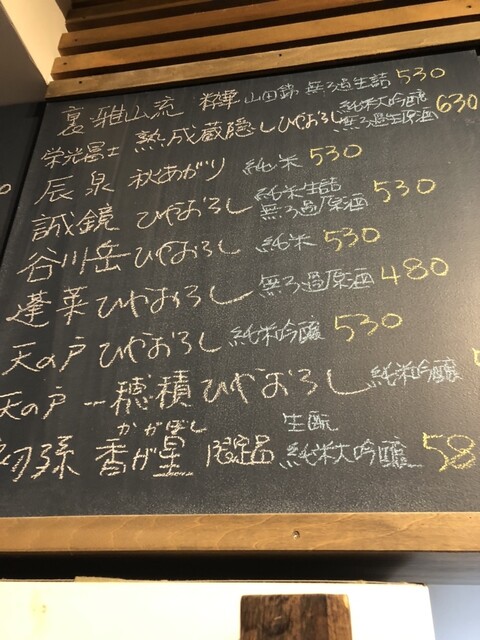 裏雅山流 粋華 山田錦 無ろ過生詰 530
栄光冨士 熟成蔵隠しひやおろし 純米大吟醸 無ろ過生原酒 630
辰泉 秋あがり 純米 530
誠鏡 ひやおろし 純米生詰 無ろ過原酒 530
谷川岳 ひやおろし 純米 530
蓬莱 ひやおろし 無ろ過原酒 480
天の戸 ひやおろし 純米吟醸 530
天の戸 一穂積 ひやおろし 純米吟醸
かがぼし
初孫 香が星 限定品 生酛 純米大吟醸 58